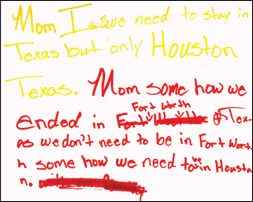 Mom I we need to stay in
Texas but only Houston
Texas. Mom some how we
Fort Worth
ended in Tex
as we don't need to be in Fort Worth
n some how we need to be in Housto
n.